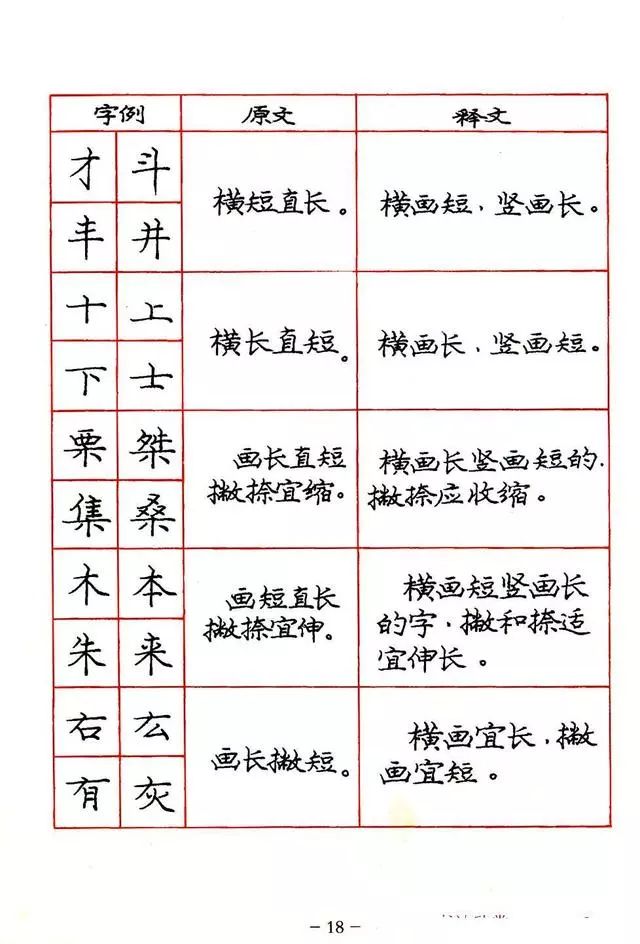 字例 原文 释文
才 斗
丰 井
横短直长。
横画短，竖画长。
十 上
下 士
横长直短。
横画长，竖画短。
栗 桀
集 桑
画长直短
撇捺宜缩。
横画长竖画短的，
撇捺应收缩。
木 本
朱 来
画短直长
撇捺宜伸。
横画短竖画长
的字，撇和捺适
宜伸长。
右 厷
有 灰
画长撇短。
横画宜长，撇
画宜短。
- 18 -